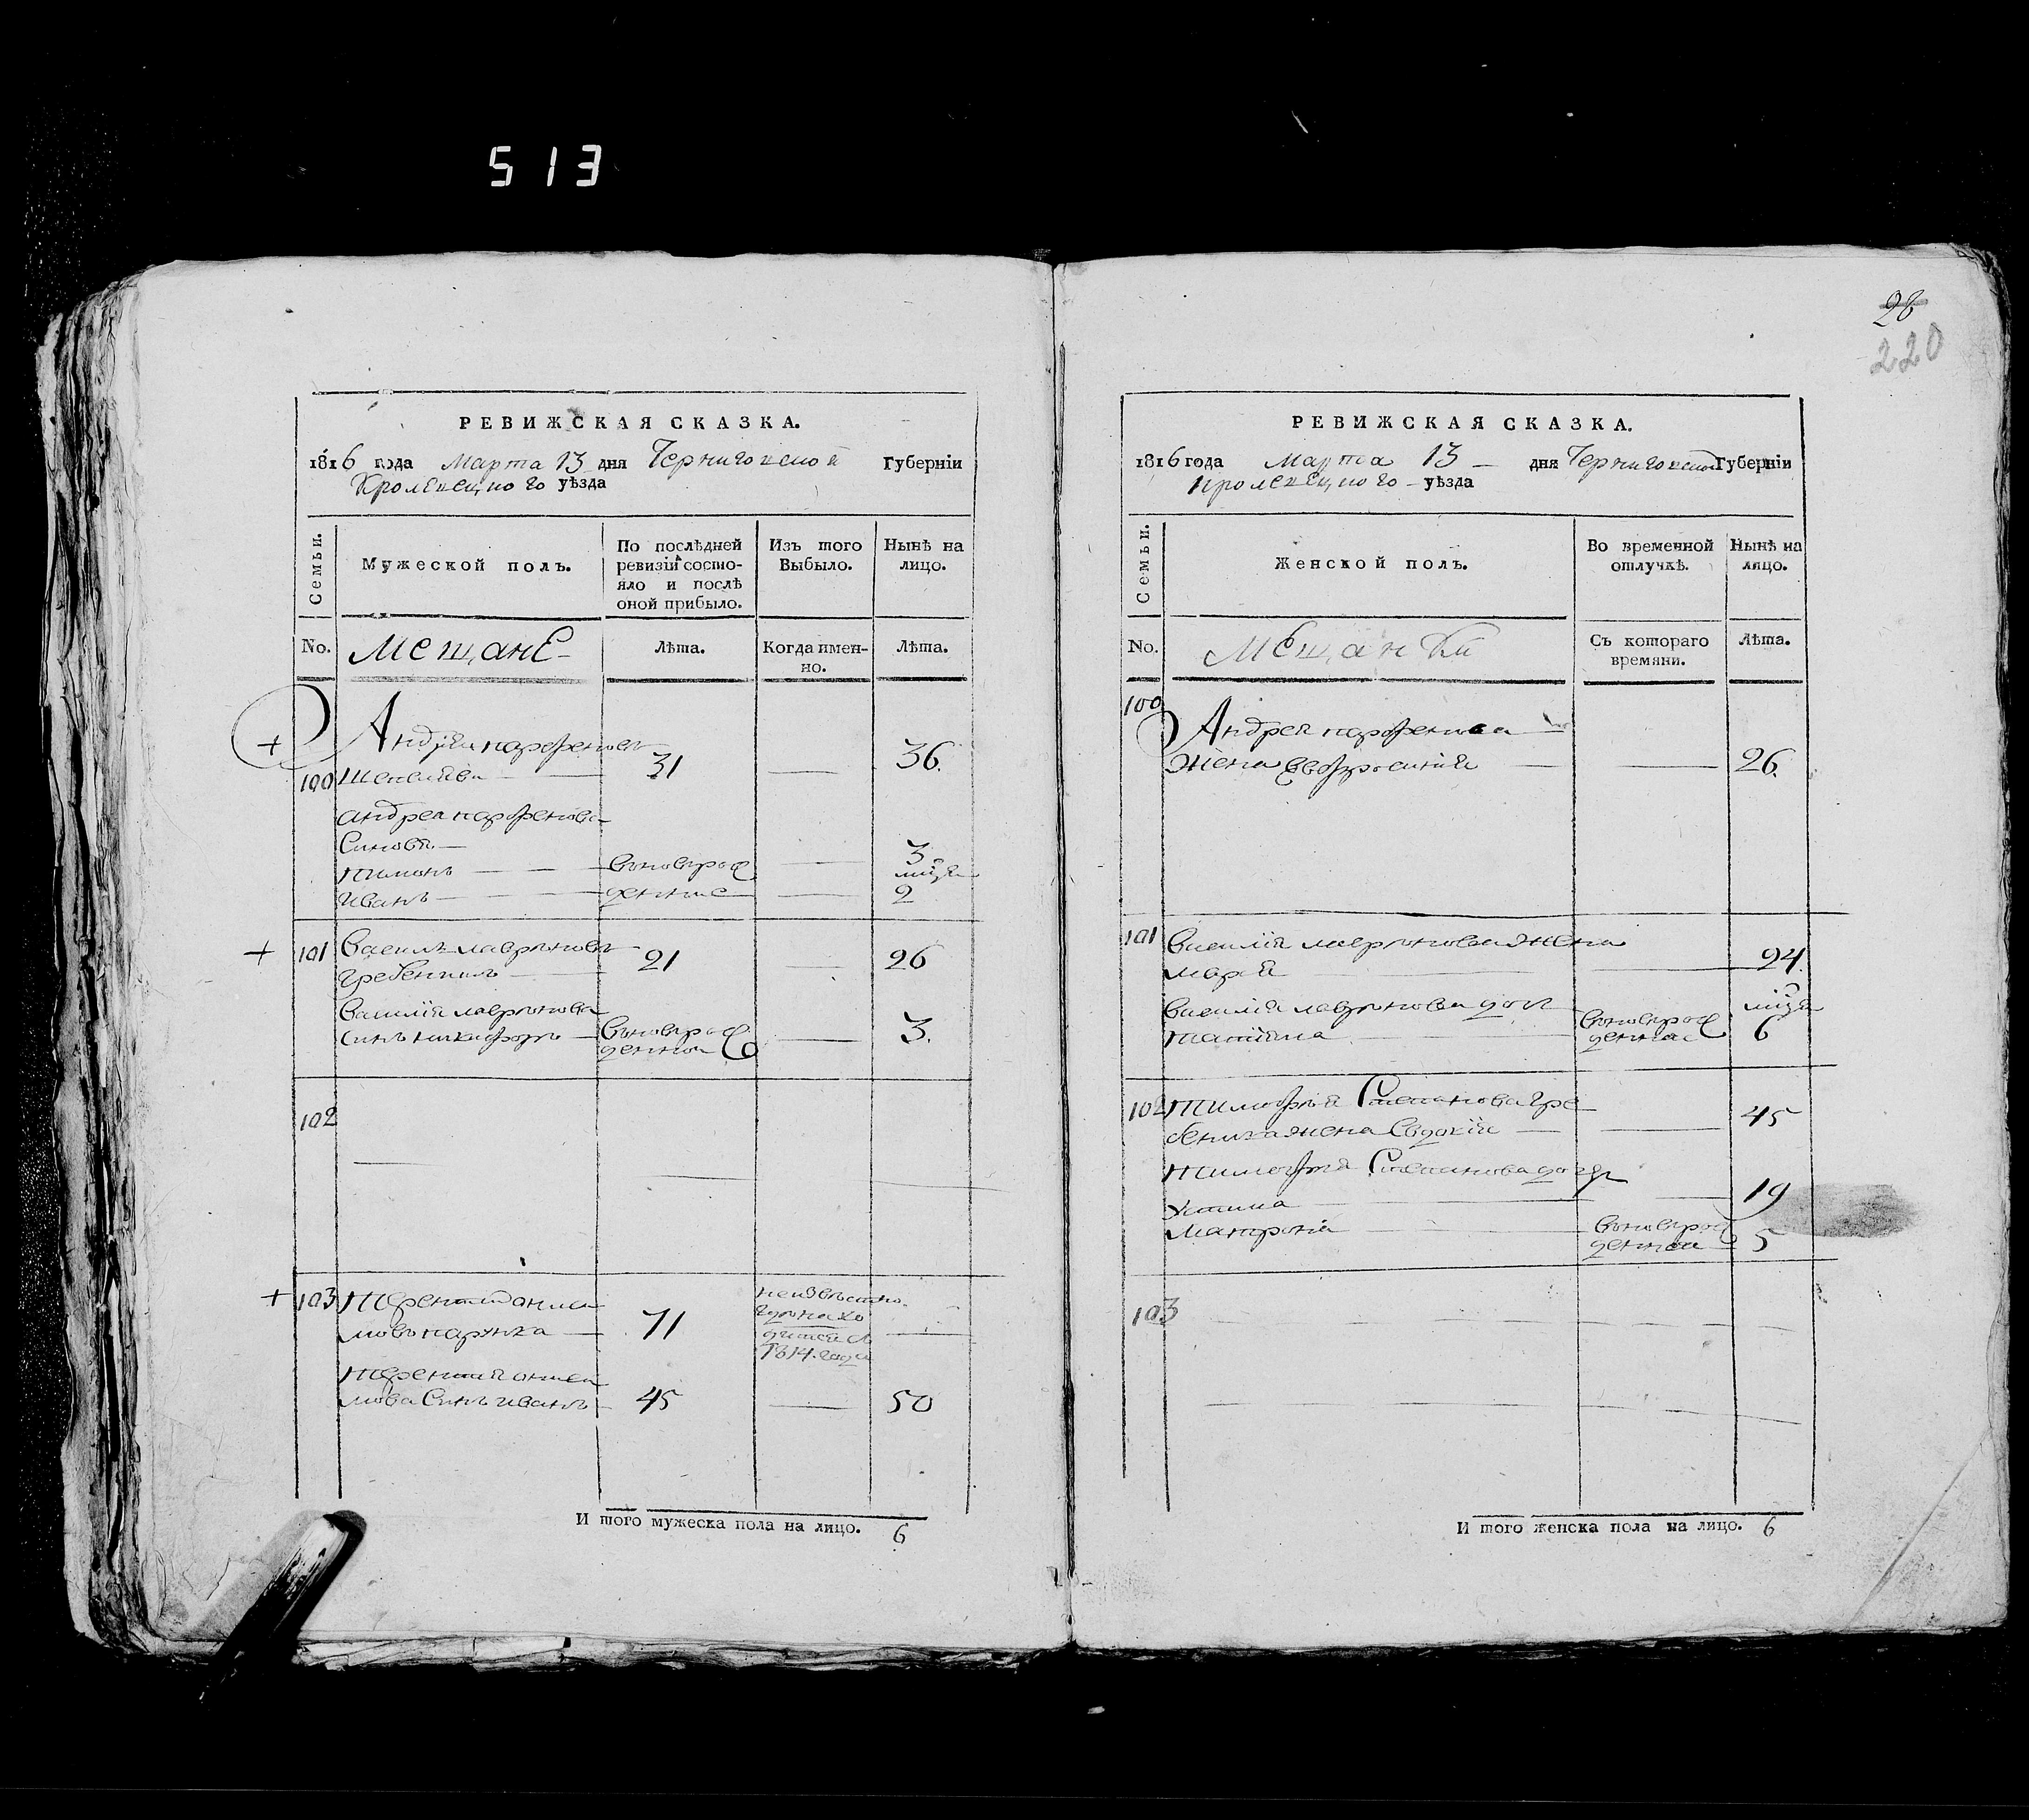 513
РЕВИЖСКАЯ СКАЗКА.
1816 года Марта 13 дня Черниговской Губернїи
Кролевецкого уѣзда
Семьи.
Мужеской полъ.
По послѣдней ревизїи состояло и послѣ оной прибыло.
Изъ того Выбыло.
Нынѣ на лицо.
No.
Мещане
Лѣта.
Когда именно.
Лѣта.
+
100
Андрей парфеновъ
31
36.
андрея парфенова
Синовя
тимонъ
вновьрож
3
иванъ
денные
мцѧ
2
+
101
Василь лавриновъ
гребенникъ
21
26
Василія лавринова
синъ никифоръ
вновьрож
денной
3.
102
+
103
терентій аниси
мовъ парунка
71
неизвѣстно
где нахо
дится съ
1814. года
терентія аниси
мова Синъ иванъ
45
50
И того мужеска пола на лицо. 6
28
220
РЕВИЖСКАЯ СКАЗКА.
1816 года Марта 13 дня Черниговской Губернїи
Кролевецкого уѣзда
Семьи.
Женской полъ.
Во временной отлучкѣ.
Нынѣ на лицо.
No.
Мещанки
Съ котораго времяни.
Лѣта.
100
Андрея парфенова
Жена Евфросинія
26.
101
Василія лавринова жена
марія
24.
Василія лавринова дочь
татіяна
вновьрож
денная
мцѧ
6
102
тимофѣя Степанова гре
бенника жена Евдокія
45
тимофѣя Степанова дочери
Устина
19
матрона
вновьрож
денная
5
103
И того женска пола на лицо. 6